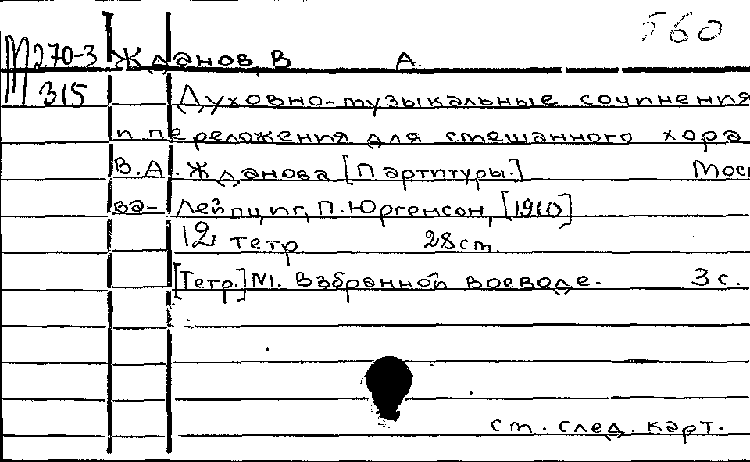 560
М270-3 Жданов, В А.
315 Духовно-музыкальные сочинения
и переложения для смешанного хора
В.А. Жданова [Партитуры.] Мос
ва- Лейпциг, П. Юргенсон, [1910]
12 тетр 28 см.
[Тетр.] №1. Взбранной воеводе. 3 с.
см. след. карт.